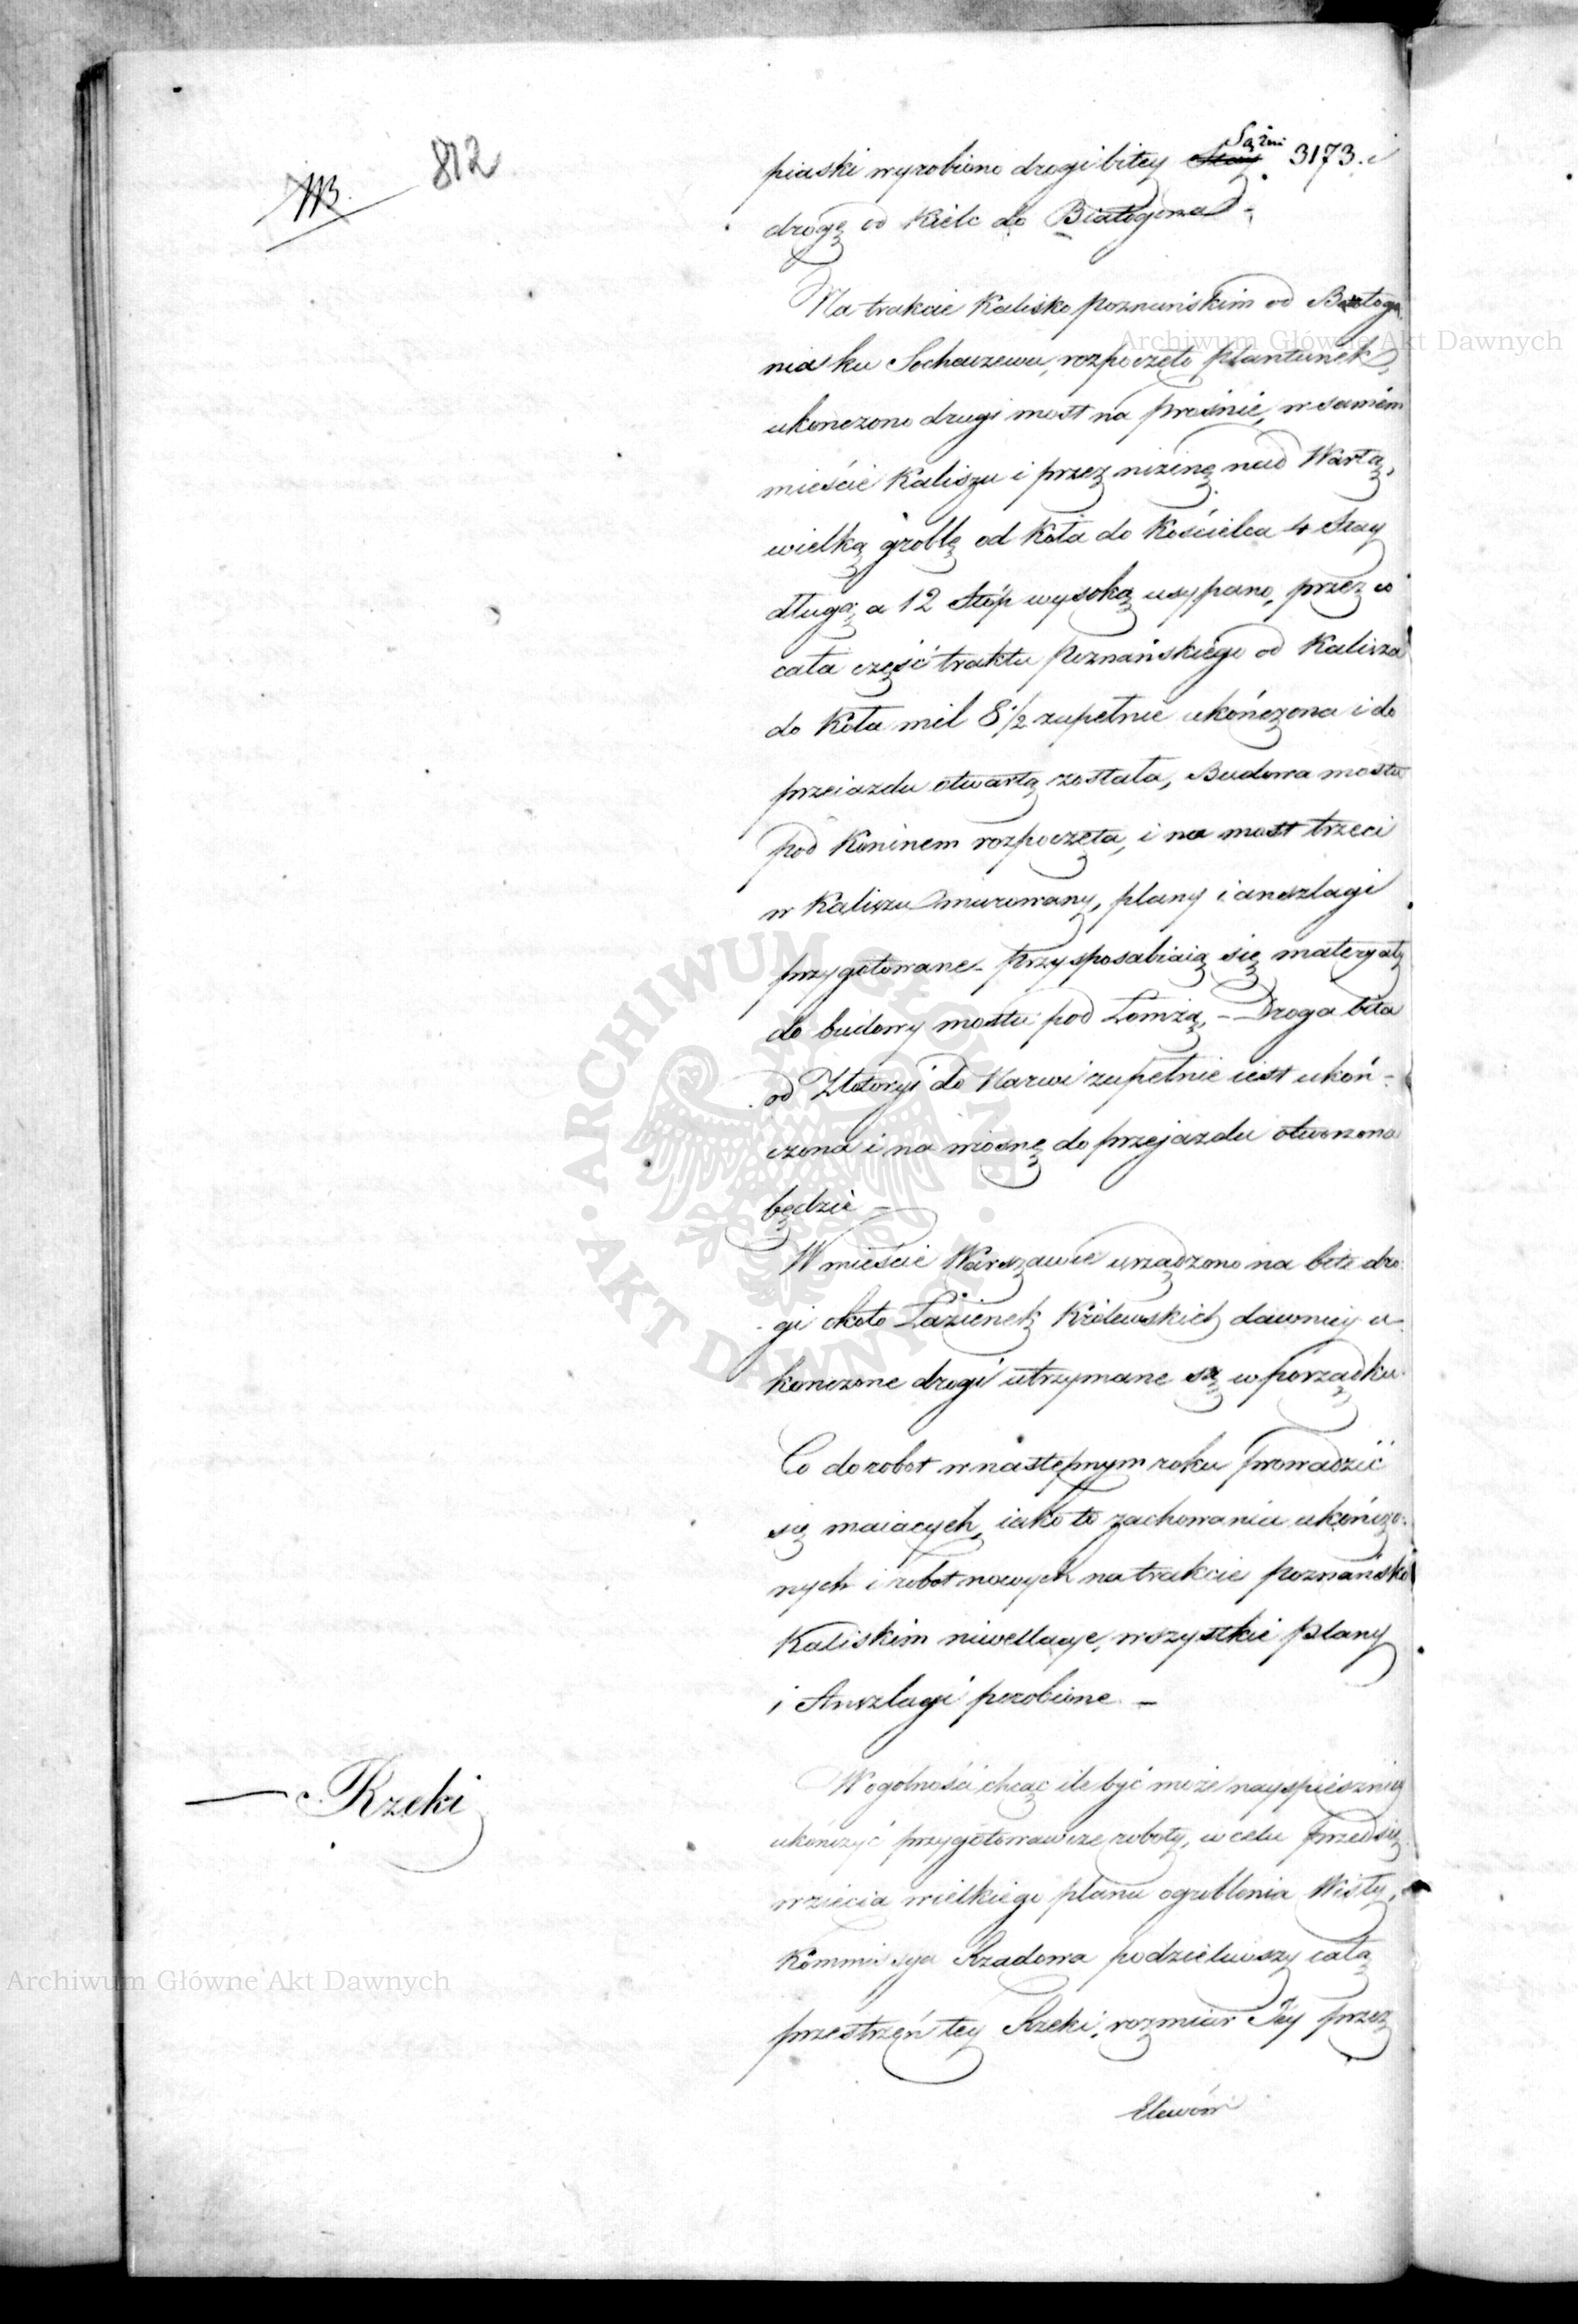 812
piaski wyrobiono drogi bitey Sążni 3173. i
drogę od Kielc do Białogona -
Na trakcie Kalisko poznańskim od Bałtoga
nia ku Sochaczewu, rozpoczęto plantunek,
ukonczono drugi most na prośnie, w samém
mieście Kaliszu i przez nizinę nad Wartą,
wielką groblę od Koła do Kościelca 4 Stay
długą a 12 Stóp wysoką usypano, przez co
cała część traktu Poznańskiego od Kalisza
do Koła mil 8 1/2 zupełnie ukończona i do
przeiazdu otwartą została, Budowa mostu
pod Koninem rozpoczęta, i na most trzeci
w Kaliszu murowany, plany i anszlagi
przygotowane - przysposabiaią się materyały
do budowy mostu pod Łomżą, - Droga bita
od Złotoryi do Narwi zupełnie iest ukoń-
czona i na wiosnę do przejazdu otworzona
będzie -
W mieście Warszawie urządzono na bite dro-
gi około Łazienek Królewskich dawniey u-
konczone drogi utrzymane są w porządku.
Co do robot w następnym roku prowadzić
się maiących, iako to zachowania ukończo-
nych i robot nowych na trakcie poznańsko
Kaliskim niwellacye, wszystkie plany
i Anszlagi porobione -
Rzeki
W ogolności chcąc ile być może nayspieszniey
ukończyć przygotowawcze roboty, w celu przedsię
wzięcia wielkiego planu ogroblenia Wisły,
Kommissya Rządowa podzieliwszy całą
przestrzeń tey Rzeki, rozmiar Jey przez
Elewów
Archiwum Główne Akt Dawnych
Archiwum Główne Akt Dawnych
ARCHIWUM GŁÓWNE AKT DAWNYCH